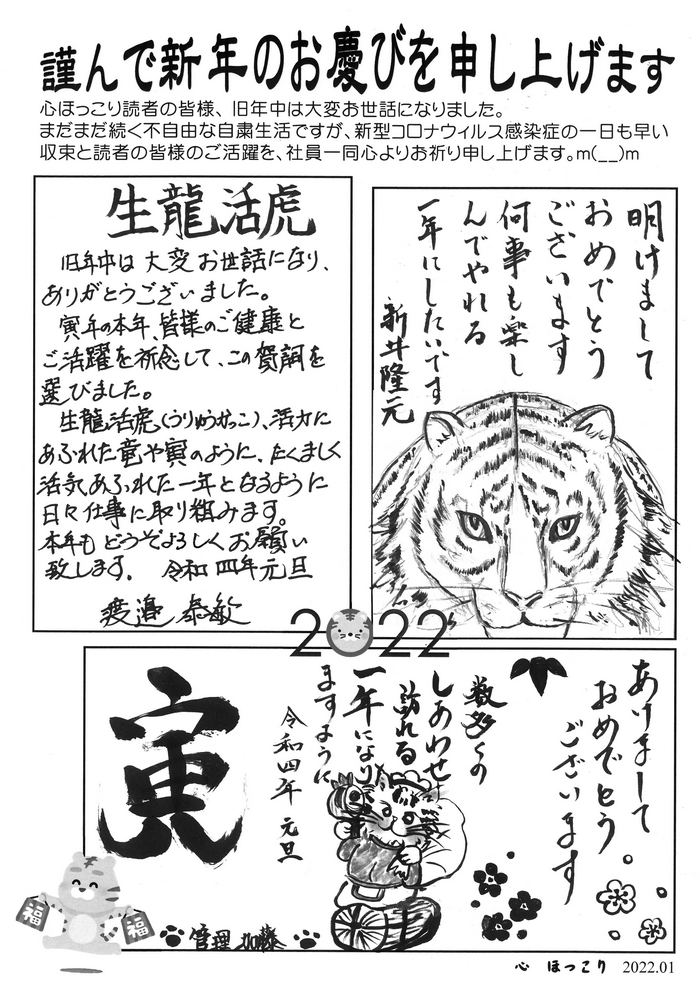 謹んで新年のお慶びを申し上げます
心ほっこり読者の皆様、旧年中は大変お世話になりました。
まだまだ続く不自由な自粛生活ですが、新型コロナウィルス感染症の一日も早い
収束と読者の皆様のご活躍を、社員一同心よりお祈り申し上げます。m(__)m
生龍活虎
旧年中は大変お世話になり、
ありがとうございました。
寅年の本年、皆様のご健康と
ご活躍を祈念して、この賀詞を
選びました。
生龍活虎(うりゅうかっこ)、活力に
あふれた竜や寅のように、たくましく
活気あふれた一年となるように
日々仕事に取り組みます。
本年もどうぞよろしくお願い
致します。 令和四年元旦
渡邉 泰敏
明けまして
おめでとう
ございます
何事も楽し
んでやれる
一年にしたいです
新井隆元
2022
あけまして
おめでとう
ございます。
数多くの
しあわせ
訪れる
一年になり
ますように
令和四年 元旦
寅
福
福
管理 加藤
心 ほっこり 2022.01